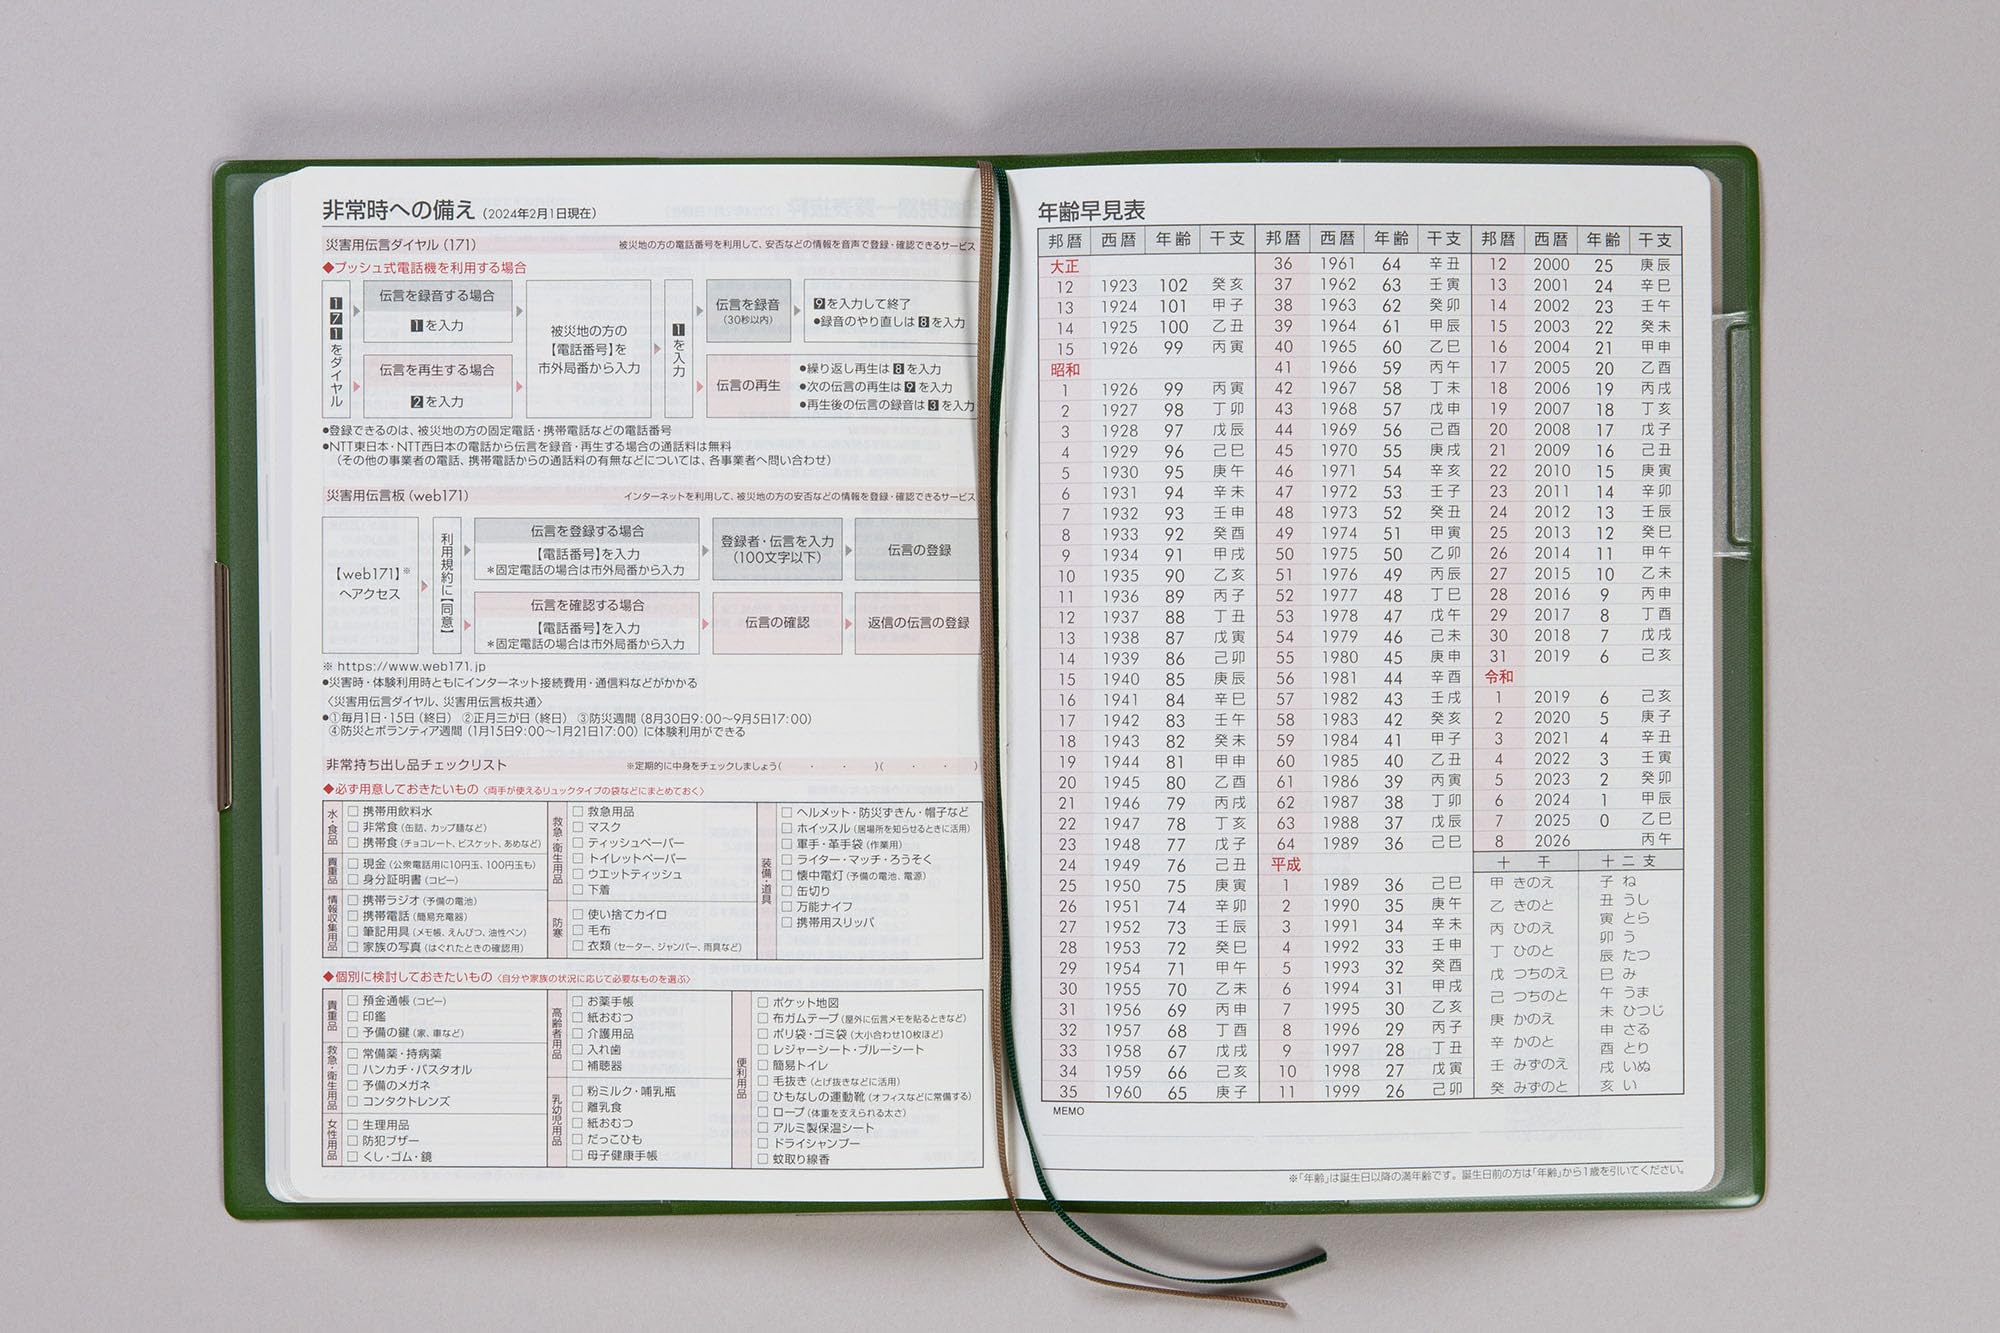 非常時への備え（2024年2月1日現在）
災害用伝言ダイヤル（171） 被災地の方の電話番号を利用して、安否などの情報を音声で登録・確認できるサービス
◆プッシュ式電話機を利用する場合
171をダイヤル
伝言を録音する場合
1を入力
伝言を再生する場合
2を入力
被災地の方の
【電話番号】を
市外局番から入力
1を入力
伝言を録音
（30秒以内）
9を入力して終了
●録音のやり直しは8を入力
伝言の再生
●繰り返し再生は8を入力
●次の伝言の再生は9を入力
●再生後の伝言の録音は3を入力
●登録できるのは、被災地の方の固定電話・携帯電話などの電話番号
●NTT東日本・NTT西日本の電話から伝言を録音・再生する場合の通話料は無料
（その他の事業者の電話、携帯電話からの通話料の有無などについては、各事業者へ問い合わせ）
災害用伝言板（web171） インターネットを利用して、被災地の方の安否などの情報を登録・確認できるサービス
【web171】※
へアクセス
利用規約に【同意】
伝言を登録する場合
【電話番号】を入力
＊固定電話の場合は市外局番から入力
登録者・伝言を入力
（100文字以下）
伝言の登録
伝言を確認する場合
【電話番号】を入力
＊固定電話の場合は市外局番から入力
伝言の確認
返信の伝言の登録
※ https://www.web171.jp
●災害時・体験利用時ともにインターネット接続費用・通信料などがかかる
〈災害用伝言ダイヤル、災害用伝言板共通〉
●①毎月1日・15日（終日） ②正月三が日（終日） ③防災週間（8月30日9：00〜9月5日17：00）
④防災とボランティア週間（1月15日9：00〜1月21日17：00）に体験利用ができる
非常持ち出し品チェックリスト ※定期的に中身をチェックしましょう（ ・ ・ ）（ ・ ・ ）
◆必ず用意しておきたいもの〈両手が使えるリュックタイプの袋などにまとめておく〉
水・食品
□ 携帯用飲料水
□ 非常食（缶詰、カップ麺など）
□ 携帯食（チョコレート、ビスケット、あめなど）
貴重品
□ 現金（公衆電話用に10円玉、100円玉も）
□ 身分証明書（コピー）
情報収集用品
□ 携帯ラジオ（予備の電池）
□ 携帯電話（簡易充電器）
□ 筆記用具（メモ帳、えんぴつ、油性ペン）
□ 家族の写真（はぐれたときの確認用）
救急・衛生用品
□ 救急用品
□ マスク
□ ティッシュペーパー
□ トイレットペーパー
□ ウエットティッシュ
□ 下着
防寒
□ 使い捨てカイロ
□ 毛布
□ 衣類（セーター、ジャンパー、雨具など）
装備・道具
□ ヘルメット・防災ずきん・帽子など
□ ホイッスル（居場所を知らせるときに活用）
□ 軍手・革手袋（作業用）
□ ライター・マッチ・ろうそく
□ 懐中電灯（予備の電池、電源）
□ 缶切り
□ 万能ナイフ
□ 携帯用スリッパ
◆個別に検討しておきたいもの〈自分や家族の状況に応じて必要なものを選ぶ〉
貴重品
□ 預金通帳（コピー）
□ 印鑑
□ 予備の鍵（家、車など）
救急・衛生用品
□ 常備薬・持病薬
□ ハンカチ・バスタオル
□ 予備のメガネ
□ コンタクトレンズ
女性用品
□ 生理用品
□ 防犯ブザー
□ くし・ゴム・鏡
高齢者用品
□ お薬手帳
□ 紙おむつ
□ 介護用品
□ 入れ歯
□ 補聴器
乳幼児用品
□ 粉ミルク・哺乳瓶
□ 離乳食
□ 紙おむつ
□ だっこひも
□ 母子健康手帳
便利用品
□ ポケット地図
□ 布ガムテープ（屋外に伝言メモを貼るときなど）
□ ポリ袋・ゴミ袋（大小合わせ10枚ほど）
□ レジャーシート・ブルーシート
□ 簡易トイレ
□ 毛抜き（とげ抜きなどに活用）
□ ひもなしの運動靴（オフィスなどに常備する）
□ ロープ（体重を支えられる太さ）
□ アルミ製保温シート
□ ドライシャンプー
□ 蚊取り線香
年齢早見表
邦暦 西暦 年齢 干支
大正
12 1923 102 癸亥
13 1924 101 甲子
14 1925 100 乙丑
15 1926 99 丙寅
昭和
1 1926 99 丙寅
2 1927 98 丁卯
3 1928 97 戊辰
4 1929 96 己巳
5 1930 95 庚午
6 1931 94 辛未
7 1932 93 壬申
8 1933 92 癸酉
9 1934 91 甲戌
10 1935 90 乙亥
11 1936 89 丙子
12 1937 88 丁丑
13 1938 87 戊寅
14 1939 86 己卯
15 1940 85 庚辰
16 1941 84 辛巳
17 1942 83 壬午
18 1943 82 癸未
19 1944 81 甲申
20 1945 80 乙酉
21 1946 79 丙戌
22 1947 78 丁亥
23 1948 77 戊子
24 1949 76 己丑
25 1950 75 庚寅
26 1951 74 辛卯
27 1952 73 壬辰
28 1953 72 癸巳
29 1954 71 甲午
30 1955 70 乙未
31 1956 69 丙申
32 1957 68 丁酉
33 1958 67 戊戌
34 1959 66 己亥
35 1960 65 庚子
邦暦 西暦 年齢 干支
36 1961 64 辛丑
37 1962 63 壬寅
38 1963 62 癸卯
39 1964 61 甲辰
40 1965 60 乙巳
41 1966 59 丙午
42 1967 58 丁未
43 1968 57 戊申
44 1969 56 己酉
45 1970 55 庚戌
46 1971 54 辛亥
47 1972 53 壬子
48 1973 52 癸丑
49 1974 51 甲寅
50 1975 50 乙卯
51 1976 49 丙辰
52 1977 48 丁巳
53 1978 47 戊午
54 1979 46 己未
55 1980 45 庚申
56 1981 44 辛酉
57 1982 43 壬戌
58 1983 42 癸亥
59 1984 41 甲子
60 1985 40 乙丑
61 1986 39 丙寅
62 1987 38 丁卯
63 1988 37 戊辰
64 1989 36 己巳
平成
1 1989 36 己巳
2 1990 35 庚午
3 1991 34 辛未
4 1992 33 壬申
5 1993 32 癸酉
6 1994 31 甲戌
7 1995 30 乙亥
8 1996 29 丙子
9 1997 28 丁丑
10 1998 27 戊寅
11 1999 26 己卯
邦暦 西暦 年齢 干支
12 2000 25 庚辰
13 2001 24 辛巳
14 2002 23 壬午
15 2003 22 癸未
16 2004 21 甲申
17 2005 20 乙酉
18 2006 19 丙戌
19 2007 18 丁亥
20 2008 17 戊子
21 2009 16 己丑
22 2010 15 庚寅
23 2011 14 辛卯
24 2012 13 壬辰
25 2013 12 癸巳
26 2014 11 甲午
27 2015 10 乙未
28 2016 9 丙申
29 2017 8 丁酉
30 2018 7 戊戌
31 2019 6 己亥
令和
1 2019 6 己亥
2 2020 5 庚子
3 2021 4 辛丑
4 2022 3 壬寅
5 2023 2 癸卯
6 2024 1 甲辰
7 2025 0 乙巳
8 2026 丙午
十干
甲 きのえ
乙 きのと
丙 ひのえ
丁 ひのと
戊 つちのえ
己 つちのと
庚 かのえ
辛 かのと
壬 みずのえ
癸 みずのと
十二支
子 ね
丑 うし
寅 とら
卯 う
辰 たつ
巳 み
午 うま
未 ひつじ
申 さる
酉 とり
戌 いぬ
亥 い
MEMO
※「年齢」は誕生日以降の満年齢です。誕生日前の方は「年齢」から1歳を引いてください。